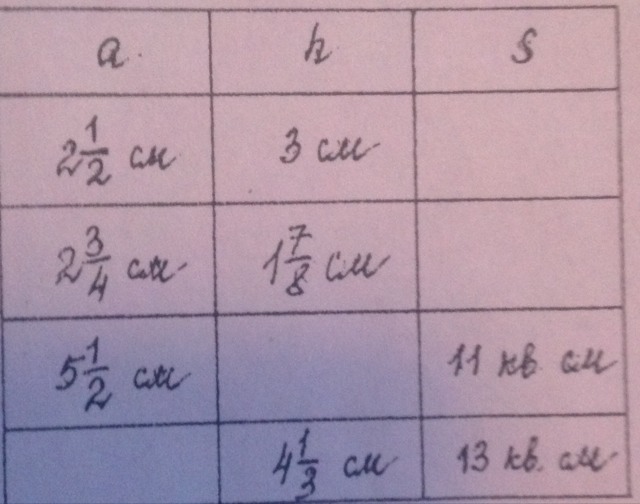 a. h S
2 1/2 см 3 см
2 3/4 см 1 7/8 см
5 1/2 см 11 кв. см
4 1/3 см 13 кв. см